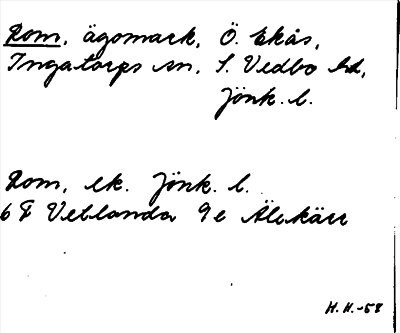 Rom, ägomark, Ö. Ekås,
Ingatorps sn, S. Vedbo hd,
Jönk. l.
Rom, ek. Jönk. l.
6 F Vetlanda 9e Älekärr
H. H. -58